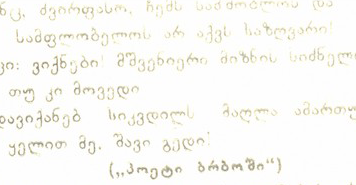 ძვირფასო, ჩემს სამშობლოს და
სამფლობელოს არ აქვს საზღვარი!
ვიქნები! მშვენიერი მიზნის
თუ კი მოვედი
სიკვდილს მაღლა
ყელით მე, შავი გედი!
(„პოეტი ბრბოში“)